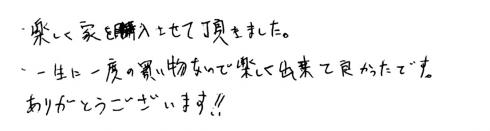 ・楽しく家を購入させて頂きました。
・一生に一度の買い物なので楽しく出来て良かったです。
ありがとうございます!!